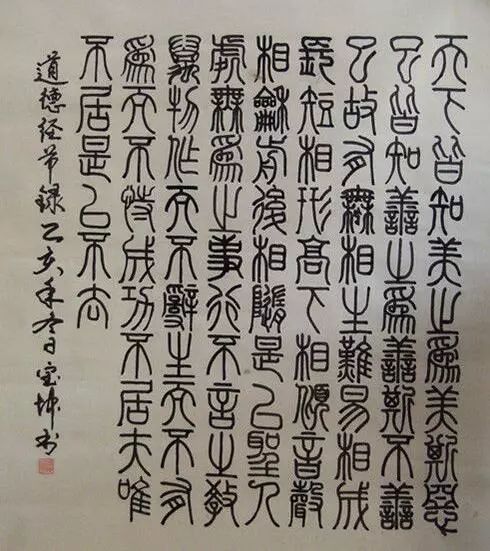 天下皆知美之為美斯惡
已皆知善之為善斯不善
已故有無相生難易相成
長短相形高下相傾音聲
相龢前後相隨是以聖人
處無為之事行不言之教
萬物作而不辭生而不有
為而不恃成功不居夫唯
不居是以不去
道德经节録乙亥年冬日宝坤书